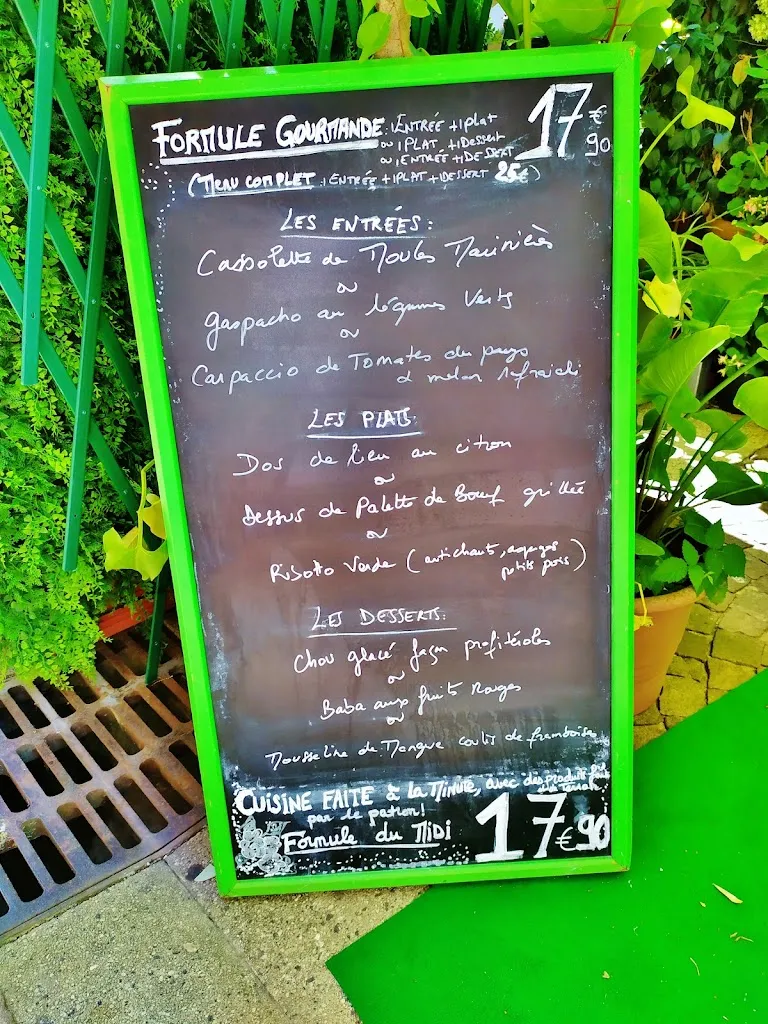 FORMULE GOURMANDE : 1 ENTRÉE + 1 plat
ou 1 PLAT + 1 Dessert
ou 1 ENTRÉE + 1 DESSERT
17€90
(MENU COMPLET 1 ENTRÉE + 1 PLAT + 1 DESSERT 25€)
LES ENTRÉES :
Cassolette de Moules Marinières
ou
gaspacho au légumes Verts
ou
Carpaccio de Tomates du pays
& melon rafraichi
LES PLATS:
Dos de lieu au citron
ou
Dessus de Palette de Boeuf grillée
ou
Risotto Verde (artichauts, asperges
petits pois)
LES DESSERTS:
Chou glacé façon profitéroles
ou
Baba aux fruits Rouges
ou
Mousseline de Mangue coulis de framboises
CUISINE FAITE à la Minute, avec des produits
du terroir
par le patron!
Formule du Midi
17€90